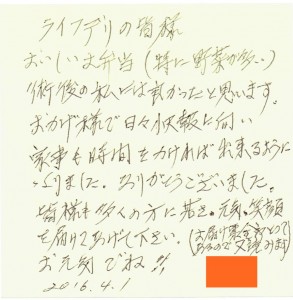 ライフデリの皆様
おいしいお弁当(特に野菜が多い)
術後の私には良かったと思います。
おかげ様で日々快報に向い
家事も時間をかければ出来るように
なりました。ありがとうございました。
皆様も多くの方に若さ。元気。笑顔
を届けてあげて下さい。
お元気でね!!
2016.4.1